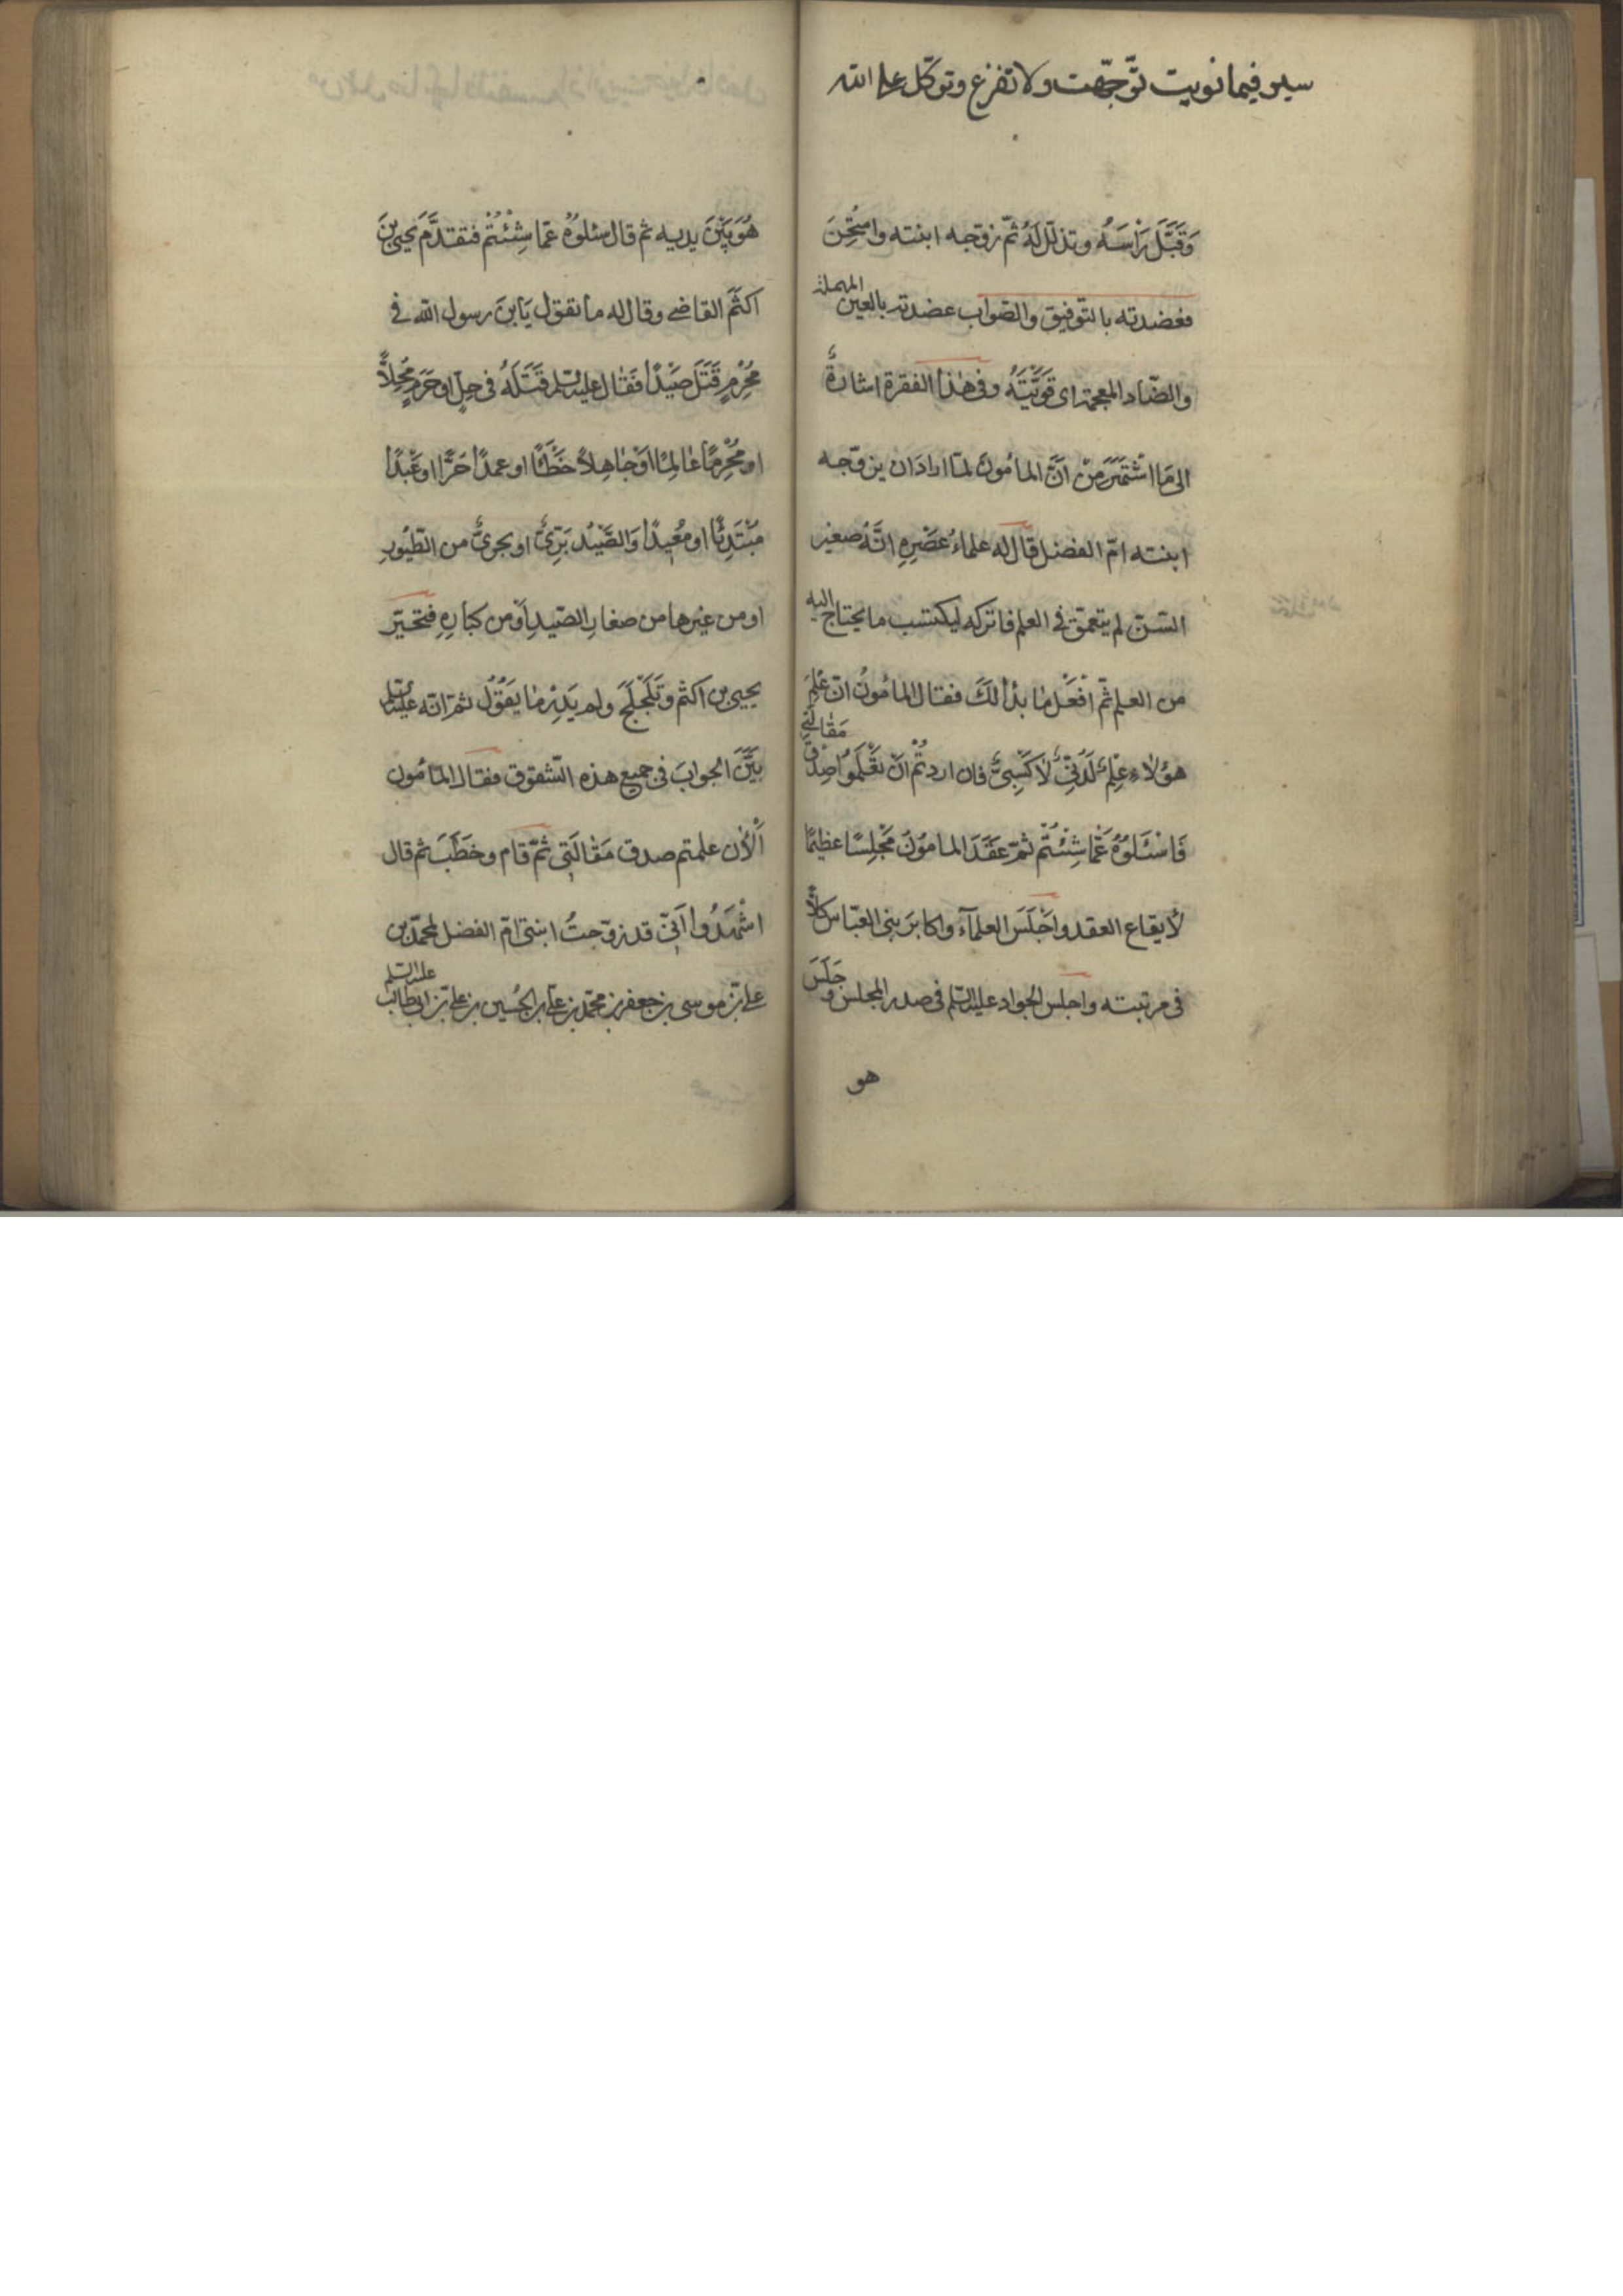 سير فيما نويت توّجّهت ولا تفزع وتوكّل على الله
وَقَبَّلَ رَاْسَهُ وتذلّل لَهُ ثمّ زوّجه ابنته وامتُحِنَ
فعضدته بالتّوفيق والصّواب عضدته بالعين المهملة
والضّاد المعجمة اى قَوَّيْتَهُ وفى هٰذا الفقرة اشارةٌ
الى مَا اشْتَهَرَ مِنْ اَنَّ المامُونَ لمّا ارادَ ان يزوّجه
ابنته امّ الفضل قال له علماءُ عَصْرِهِ انَّهُ صغير
السّنّ لم يتعمق فى العلم فاتركه ليكتسب ما يحتاج اليه
من العلم ثمّ افْعَل مٰا بدٰا لَكَ فقال المامُونُ انّ عِلْمَ
هؤلاءِ عِلْمٌ لَدُنِّىٌّ لاٰ كَسْبِىٌّ فان اردتُمْ انْ تَعْلَمُوا صِدْقَ مَقٰالَتِى
فَاسْئَلُوُهُ عَمّا شِئْتُمْ ثمّ عَقَدَ المامُوُنُ مَجْلِسًا عظيمًا
لاٰيقاع العقد واَجْلَسَ العلمآءَ واكابرَ بنى العبّاس كلاًّ
فى مرتبته واجلس الجواد عليه السّلم فى صدر المجلس وجَلَسَ
هو
هُوَ بَيْنَ يديه ثم قال سئلوُهُ عمّا شِئْتُمْ فتقدَّمَ يحيى بنَ
اكثَمَ القاضى وقال له ما تقول يَابنَ رسول الله فى
مُحْرِمٍ قَتَلَ صَيْدًا فَقٰال عليه السّلم قَتَلَهُ فى حِلٍّ او حَرَمٍ مُحِلاًّ
او مُحْرِمًا عٰالِمًا اوْ جٰاهِلاً خَطَئًا او عمدًا حُرًّا او عَبْدًا
مُبْتَدِئًا او مُعيدًا وَالصَّيْدُ بَرِّىٌّ او بحرىٌّ من الطّيُورِ
او من غيرها من صغارِ الصّيدِ اَوْ من كبارِهِ فتحيّر
يحيى بن اكثم وتَلَجْلَجَ ولم يَدْرِ مٰا يَقُوُلُ ثمّ انّه عليه السّلم
بَيَّنَ الجوابَ فى جميع هذه الشّقوق فقال المأمُون
اَلْاٰن علمتم صدق مَقٰالَتِى ثمّ قام وخَطَبَ ثم قال
اشْهَدُوا اَنِّى قد زوّجتُ ابنتى امّ الفضل لمحمّد بن
على بن موسى بن جعفر بن محمّد بن على بن الحُسين بن على بن ابيطالب عليه السّلم